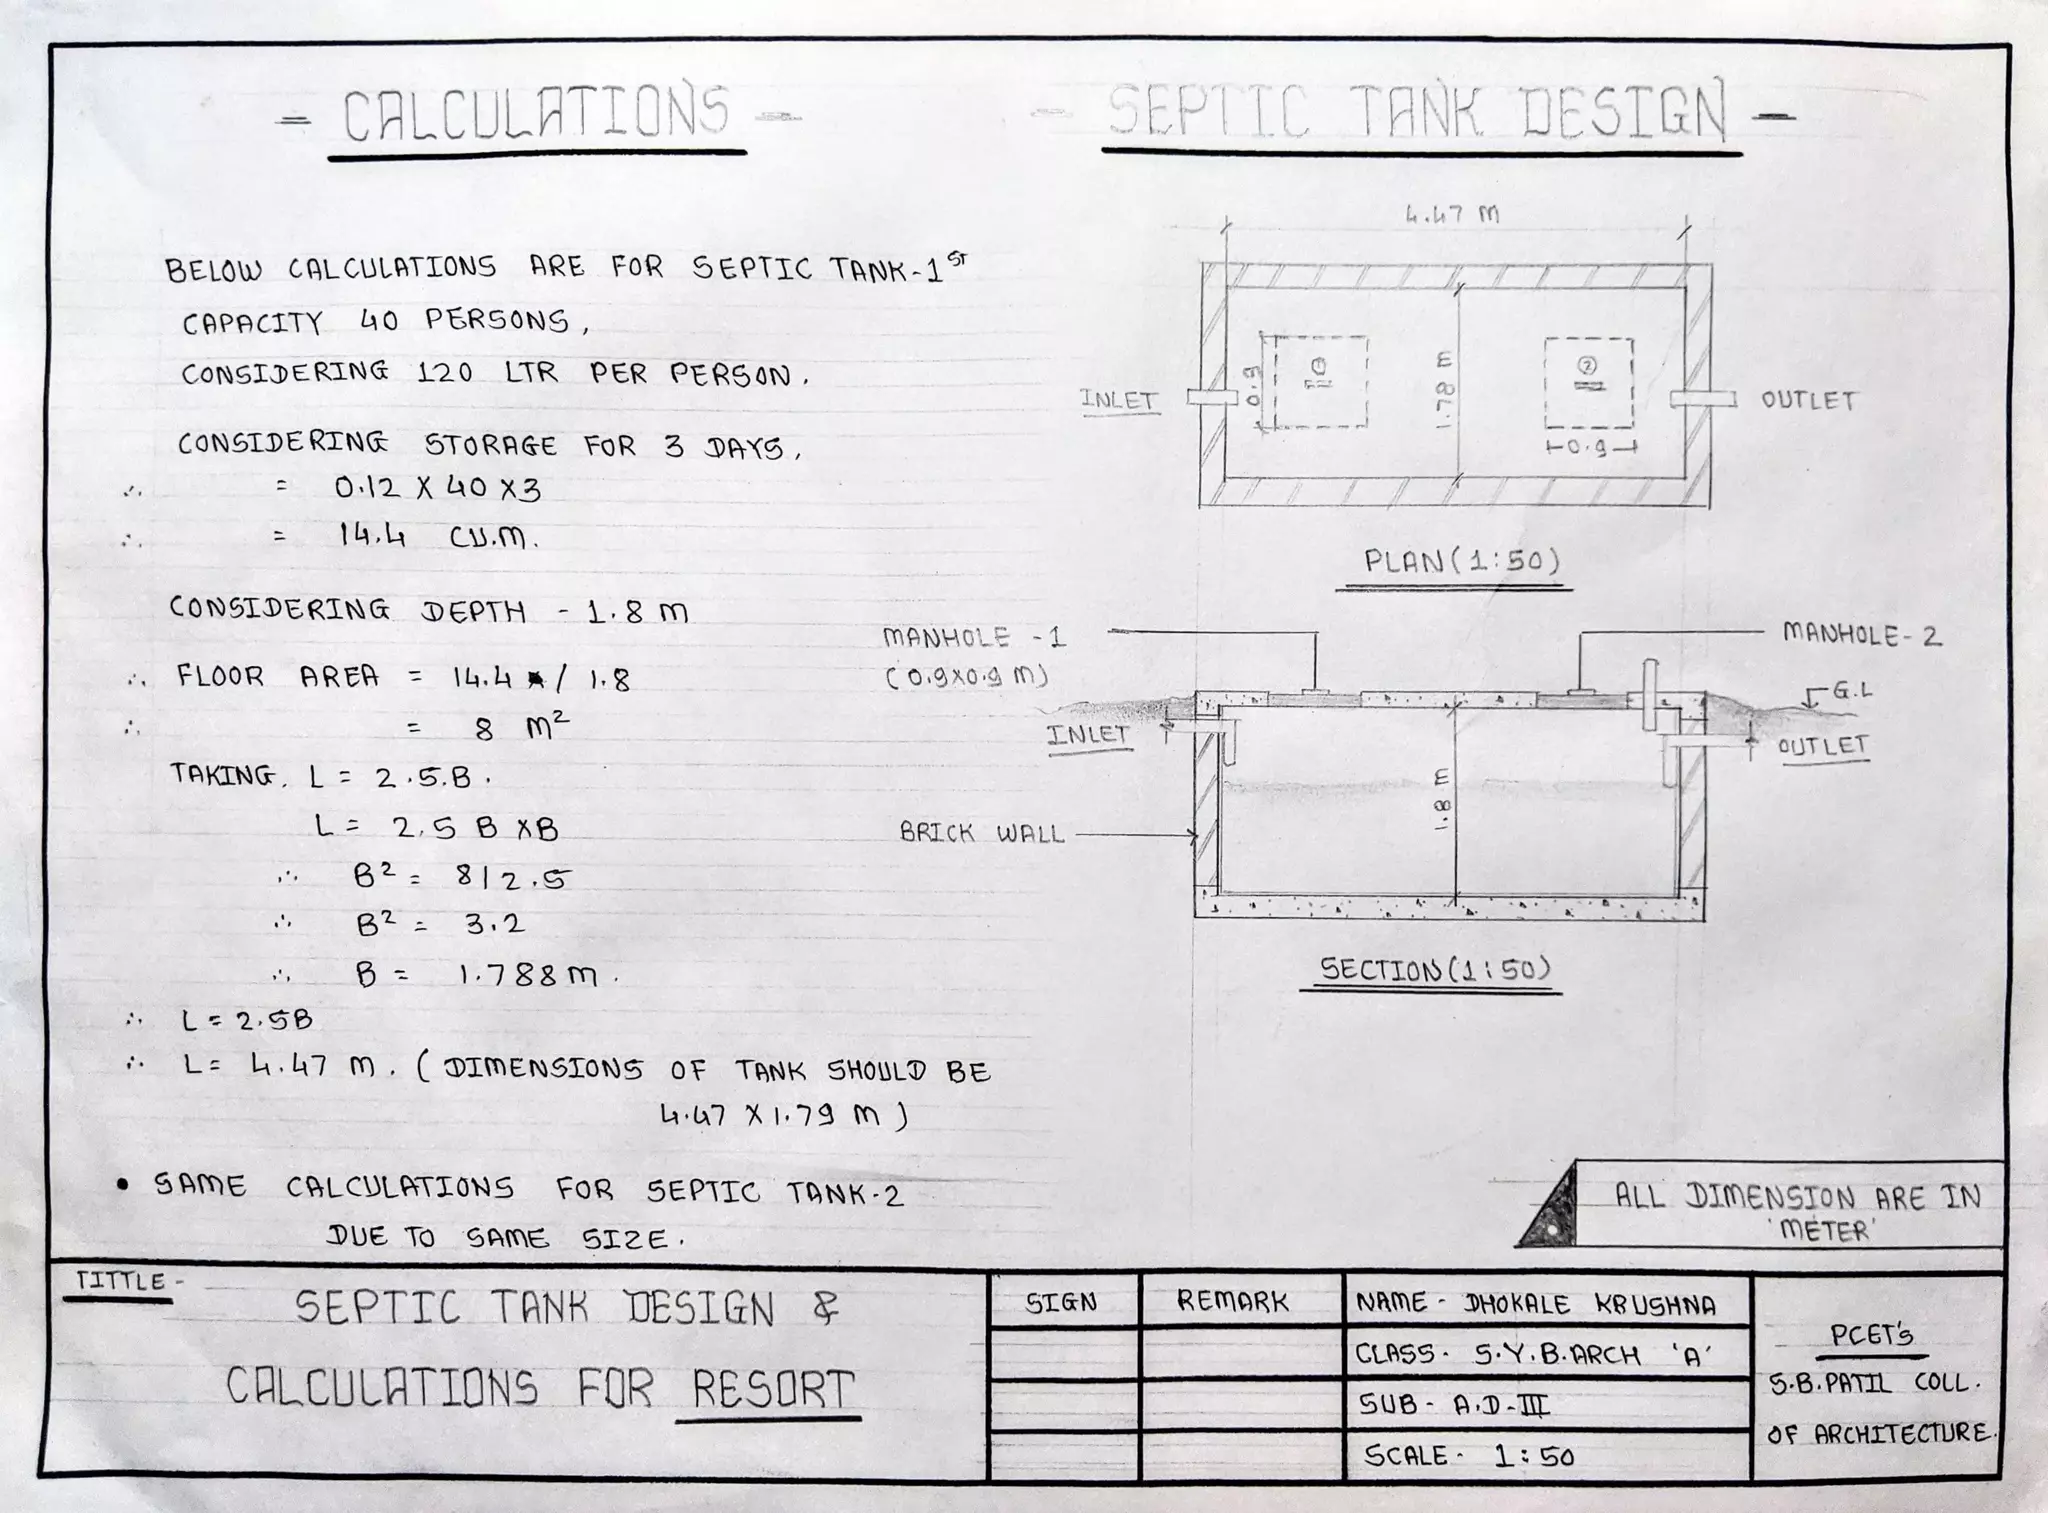 - CALCULATIONS -
BELOW CALCULATIONS ARE FOR SEPTIC TANK-1ST
CAPACITY 40 PERSONS,
CONSIDERING 120 LTR PER PERSON.
CONSIDERING STORAGE FOR 3 DAYS,
∴ = 0.12 X 40 X3
∴ = 14.4 CU.M.
CONSIDERING DEPTH - 1.8 M
∴ FLOOR AREA = 14.4 / 1.8
∴ = 8 M²
TAKING. L = 2.5.B.
L = 2.5 B XB
∴ B² = 8/2.5
∴ B² = 3.2
∴ B = 1.788M.
∴ L = 2.5B
∴ L = 4.47 M. ( DIMENSIONS OF TANK SHOULD BE
4.47 X 1.79 M )
• SAME CALCULATIONS FOR SEPTIC TANK-2
DUE TO SAME SIZE.
- SEPTIC TANK DESIGN -
4.47 M
INLET
0.9
1
1.78 M
2
0.9
OUTLET
PLAN(1:50)
MANHOLE -1
(0.9X0.9 M)
MANHOLE-2
G.L
INLET
OUTLET
1.8 M
BRICK WALL
SECTION(1:50)
ALL DIMENSION ARE IN
'METER'
TITTLE -
SEPTIC TANK DESIGN &
CALCULATIONS FOR RESORT
SIGN
REMARK
NAME - DHOKALE KRUSHNA
CLASS - S.Y.B.ARCH 'A'
SUB - A.D-III
SCALE - 1:50
PCET's
S.B.PATIL COLL.
OF ARCHITECTURE.